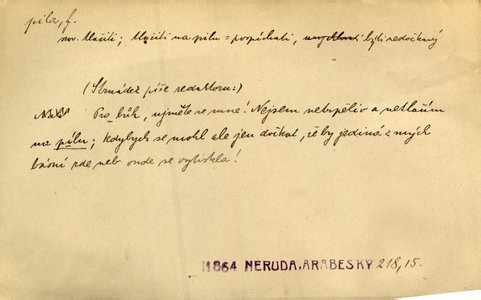 pila, f.
srv. tlačiti; tlačiti na pilu = pospíchati, býti nedočkavý
(Strnádek píše redaktoru:)
Pro bůh, ujměte se mne! Nejsem netrpěliv a netlačím
na pilu; kdybych se mohl ale jen dočkat, že by jediná z mých
básní zde neb onde se vytiskla!
1864 NERUDA, ARABESKY 218, 15.